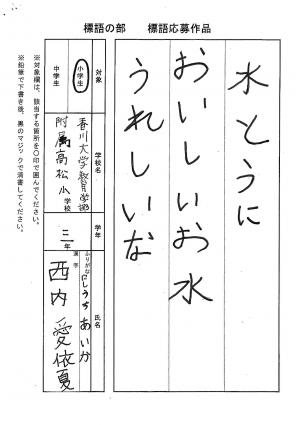 標語の部　標語応募作品
水とうに
おいしいお水
うれしいな
対象
小学生
中学生
学校名
香川大学教育学部
附属高松小学校
学年
三年
氏名
ふりがな　にしうち　あいか
漢字　西内　愛依夏
※対象欄は、該当する箇所を〇印で囲んでください。
※鉛筆で下書き後、黒のマジックで清書してください。